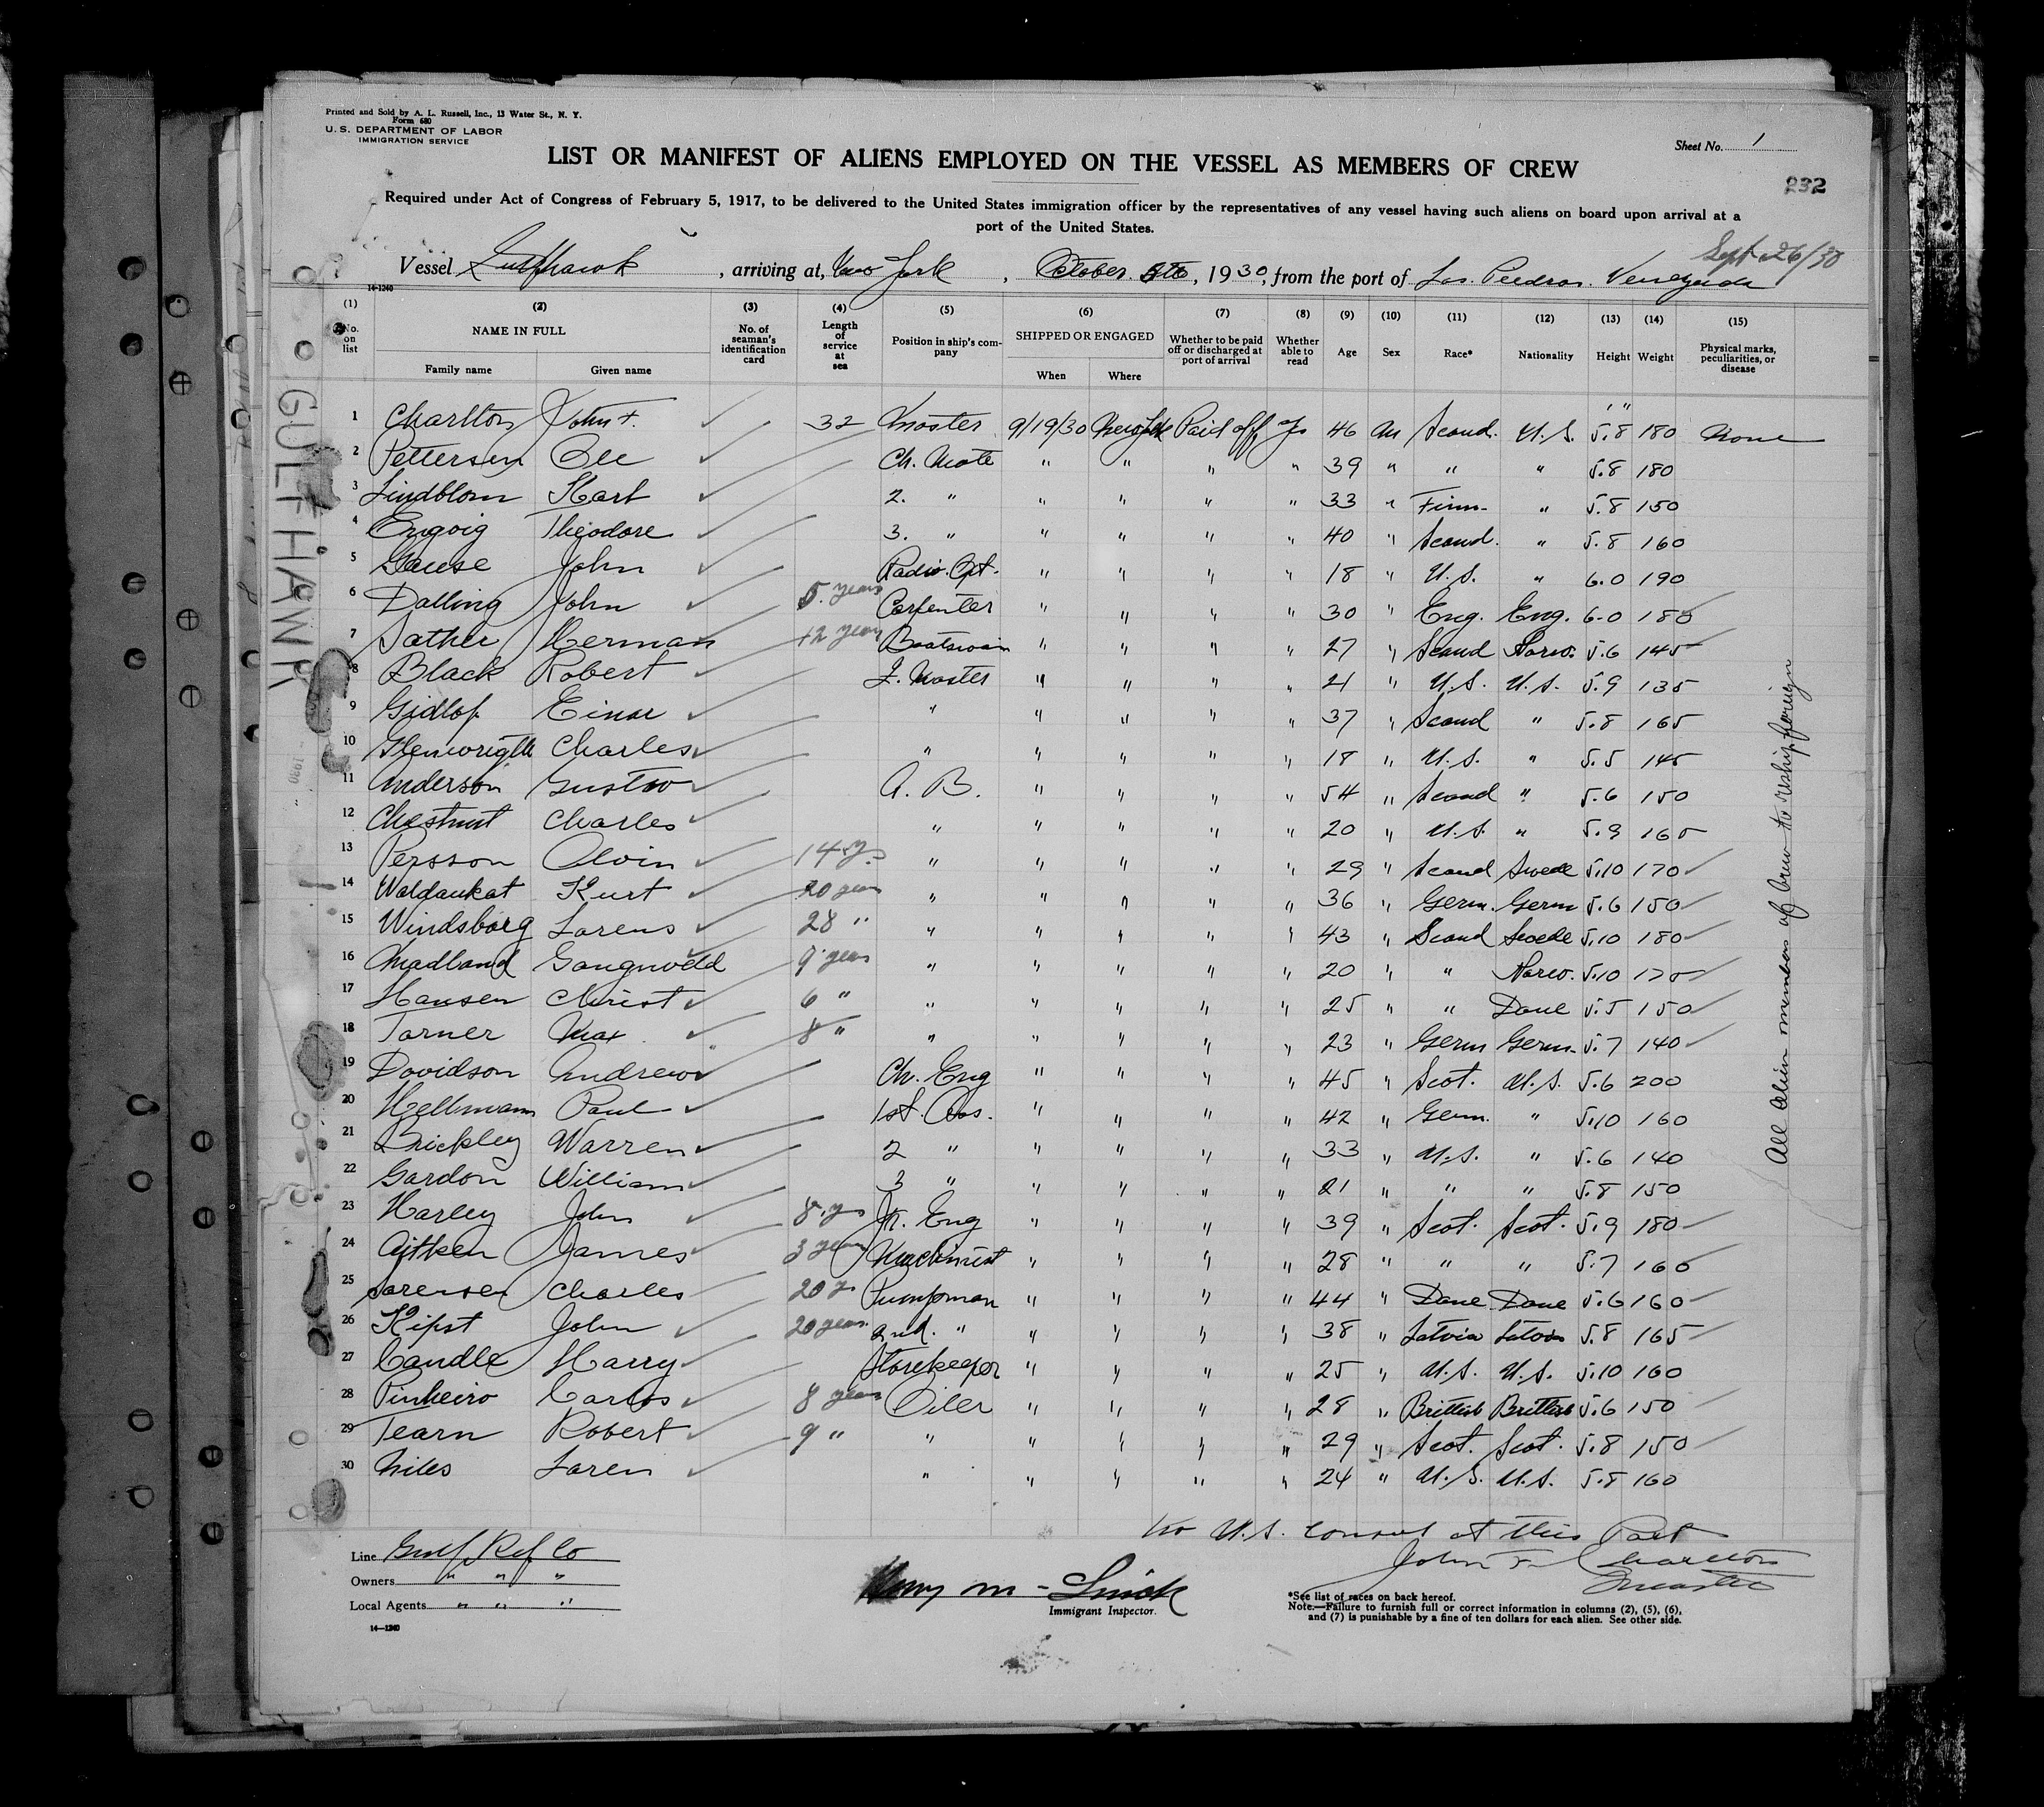 Printed and Sold by A. L. Russell, Inc., 13 Water St., N. Y.
Form 680
U. S. DEPARTMENT OF LABOR
IMMIGRATION SERVICE
Sheet No. 1
LIST OR MANIFEST OF ALIENS EMPLOYED ON THE VESSEL AS MEMBERS OF CREW
232
Required under Act of Congress of February 5, 1917, to be delivered to the United States immigration officer by the representatives of any vessel having such aliens on board upon arrival at a
port of the United States.
Sept 26/30
Vessel Gulfhawk, arriving at, New York, October 5th, 1930, from the port of Las Piedras. Venezuela
14-1240
(1) (2) (3) (4) (5) (6) (7) (8) (9) (10) (11) (12) (13) (14) (15)
No. on list NAME IN FULL No. of seaman's identification card Length of service at sea Position in ship's company SHIPPED OR ENGAGED Whether to be paid off or discharged at port of arrival Whether able to read Age Sex Race* Nationality Height Weight Physical marks, peculiarities, or disease
Family name Given name When Where
GULFHAWK
1 Charlton John F. 32 Master 9/19/30 New York Paid off yes 46 M Scand. U.S. 5.8 180 None
2 Pettersen Ole Ch. Mate " " " " 39 " " " 5.8 180
3 Lindblom Karl 2. " " " " " 33 " Finn. " 5.8 150
4 Engvig Theodore 3. " " " " " 40 " Scand. " 5.8 160
5 Gause John Radio Opt. " " " " 18 " U.S. " 6.0 190
6 Dalling John 5. years Carpenter " " " " 30 " Eng. Eng. 6-0 185
7 Sather Herman 12 years Boatswain " " " " 27 " Scand Norw. 5.6 145
8 Black Robert Q. Master " " " " 21 " U.S. U.S. 5.9 135
9 Gidlof Einar " " " " " 37 " Scand " 5.8 165
10 Glenwright Charles " " " " " 18 " U.S. " 5.5 145
11 Anderson Gustav A. B. " " " " 54 " Scand " 5.6 150
12 Chestnut Charles " " " " " 20 " U.S. " 5.9 165
13 Persson Alvin 14 y. " " " " " 29 " Scand Swede 5.10 170
14 Waldaukat Kurt 20 years " " " " " 36 " Germ. Germ 5.6 150
15 Windsborg Larens 28 " " " " " " 43 " Scand Swede 5.10 180
16 Madland 9 years " " " " " 20 " " Norw. 5.10 170
17 Hansen Christ 6 " " " " " " 25 " " Dane 5.5 150
18 Tarner Max 8 " " " " " " 23 " Germ Germ. 5.7 140
19 Davidson Andrew Ch. Eng " " " " 45 " Scot. U.S. 5.6 200
20 Hellmann Paul 1st. Ass. " " " " 42 " Germ. " 5.10 160
21 Brickley Warren 2 " " " " " 33 " U.S. " 5.6 140
22 Gardon William 3 " " " " " 21 " " " 5.8 150
23 Harley John 8. ys Jr. Eng " " " " 39 " Scot. Scot. 5.9 180
24 Aitken James 3 years Machinist " " " " 28 " " " 5.7 160
25 Sorensen Charles 20 y. Pumpman " " " " 44 " Dane Dane 5.6 160
26 Kipst John 20 years 2nd. " " " " " 38 " Latvia 5.8 165
27 Candle Harry Storekeeper " " " " 25 " U.S. U.S. 5.10 160
28 Pinheiro Carlos 8 years Oiler " " " " 28 " Brittish Brittish 5.6 150
29 Tearn Robert 9 " " " " " " 29 " Scot. Scot. 5.8 150
30 Niles Laren " " " " " 24 " U.S. U.S. 5.8 160
All alien members of crew to reship foreign
No U.S. Consul at this Port
John F. Charlton
Master
Line Gulf Ref Co
Owners " " "
Local Agents " " "
14-1240
Immigrant Inspector.
*See list of races on back hereof.
Note.—Failure to furnish full or correct information in columns (2), (5), (6),
and (7) is punishable by a fine of ten dollars for each alien. See other side.